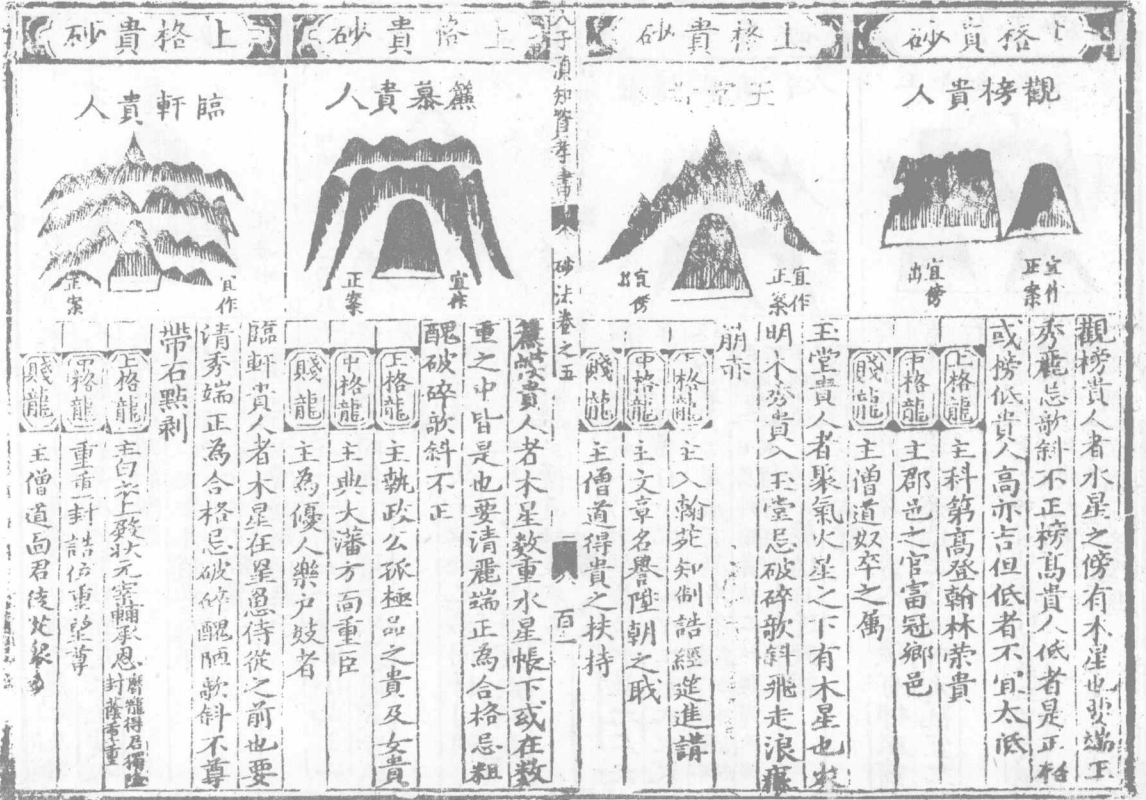 上格貴砂
觀榜貴人
宜作正案
宜傍出
觀榜貴人者水星之傍有木星也要端正
秀麗忌欹斜不正榜高貴人低者是正格
或榜低貴人高亦吉但低者不宜太低
上格龍 主科第高登翰林荣貴
中格龍 主郡邑之官富冠鄉邑
賤龍 主僧道奴卒之属
上格貴砂
玉堂
宜作正案
宜傍出
玉堂貴人者聚氣火星之下有木星也
明木
貴人玉堂忌破碎欹斜飛走浪痕
崩赤
上格龍 主入翰苑知制誥經筵進講
中格龍 主文章名譽陞朝之職
賤龍 主僧道得貴之扶持
人子須知資孝書 砂法卷之五
上格貴砂
簾幕貴人
宜作正案
簾幕貴人者木星数重水星帳下或在数
重之中皆是也要清麗端正為合格忌粗
醜破碎欹斜不正
上格龍 主執政公孤極品之貴及女貴
中格龍 主典大藩方面重臣
賤龍 主為優人樂户妓者
上格貴砂
臨軒貴人
宜作正案
臨軒貴人者木星在星愚侍從之前也要
清秀端正為合格忌破碎醜陋欹斜不尊
帶石點剥
上格龍 主白衣上殿狀元宰輔承恩
封䕃重重
中格龍 重重封誥位重望尊
賤龍 主僧道面君